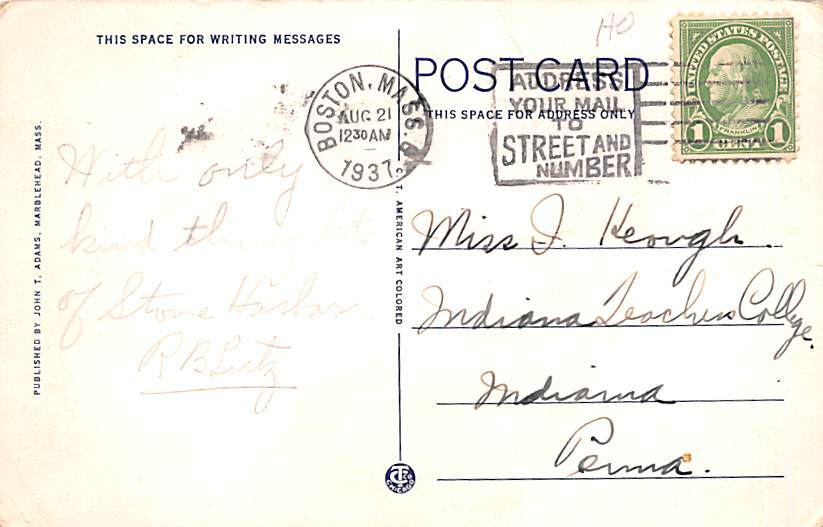 THIS SPACE FOR WRITING MESSAGES
HO
POST CARD
THIS SPACE FOR ADDRESS ONLY
BOSTON, MASS.
AUG 21
12 30 AM
1937
ADDRESS
YOUR MAIL
TO
STREET AND
NUMBER
UNITED STATES POSTAGE
FRANKLIN
1 1
With only
kind thoughts
of Stone Harbor
R B Lutz
Miss I. Keough.
Indiana Teachers College,
Indiana
Penna.
PUBLISHED BY JOHN T. ADAMS, MARBLEHEAD, MASS.
C. T. AMERICAN ART COLORED
CHICAGO